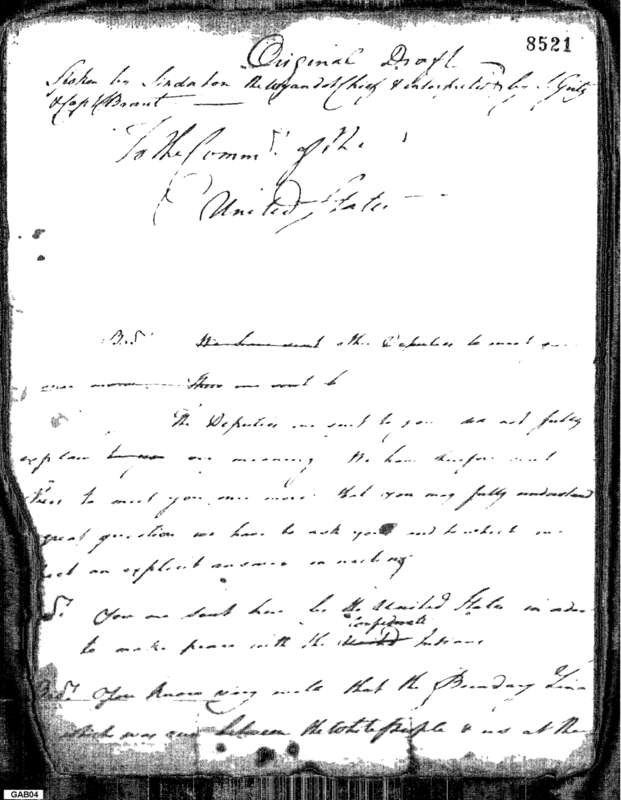 8521
Original Draft
Spoken by Sindaton the Wyandot Chief & interpreted by S Girty
& Capt Brant
To the Comm.rs of the
United States
Brs. We have sent other Deputies to meet
once more Those we sent
The Deputies we sent to you did not fully
explain our meaning We have therefore sent
others to meet you once more that you may fully understand
great question we have to ask you and to which we
an explicit answer in writing
You are sent here by the United States in order
Confederate
to make peace with the United Indians
Brs. You know very well that the Boundary Line
which was run between the White People & us at the
GAB04